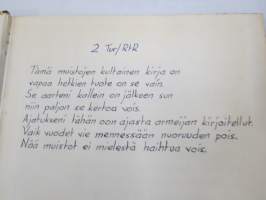 2 Tur/RtR
Tämä muistojen kultainen kirja on
vapaa hetkien tuote on se vain.
Se aarteni kallein on jälkeen sun
niin paljon se kertoa vois.
Ajatukseni tähän oon ajasta armeijan kirjaitellut.
Vaik vuodet vie mennessään nuoruuden pois.
Nää muistot ei mielestä haihtua vois.